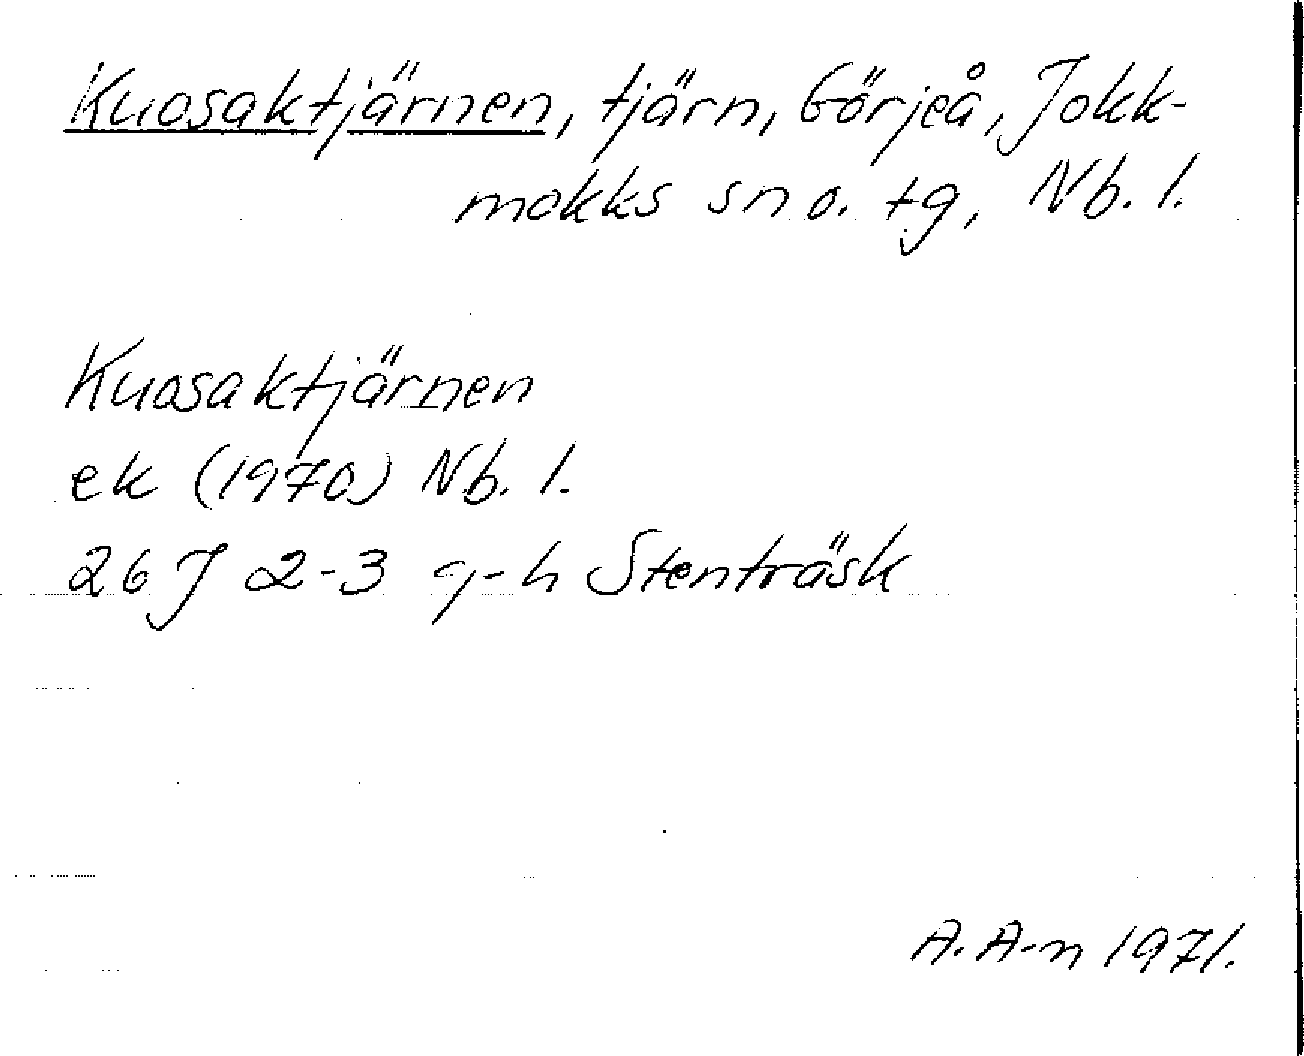 Kuosaktjärnen, tjärn, Görjeå, Jokk-
mokks sn o. tg, Nb. l.
Kuosaktjärnen
ek (1970) Nb. l.
26 J 2-3 g-h Stenträsk
A. A-n 1971.